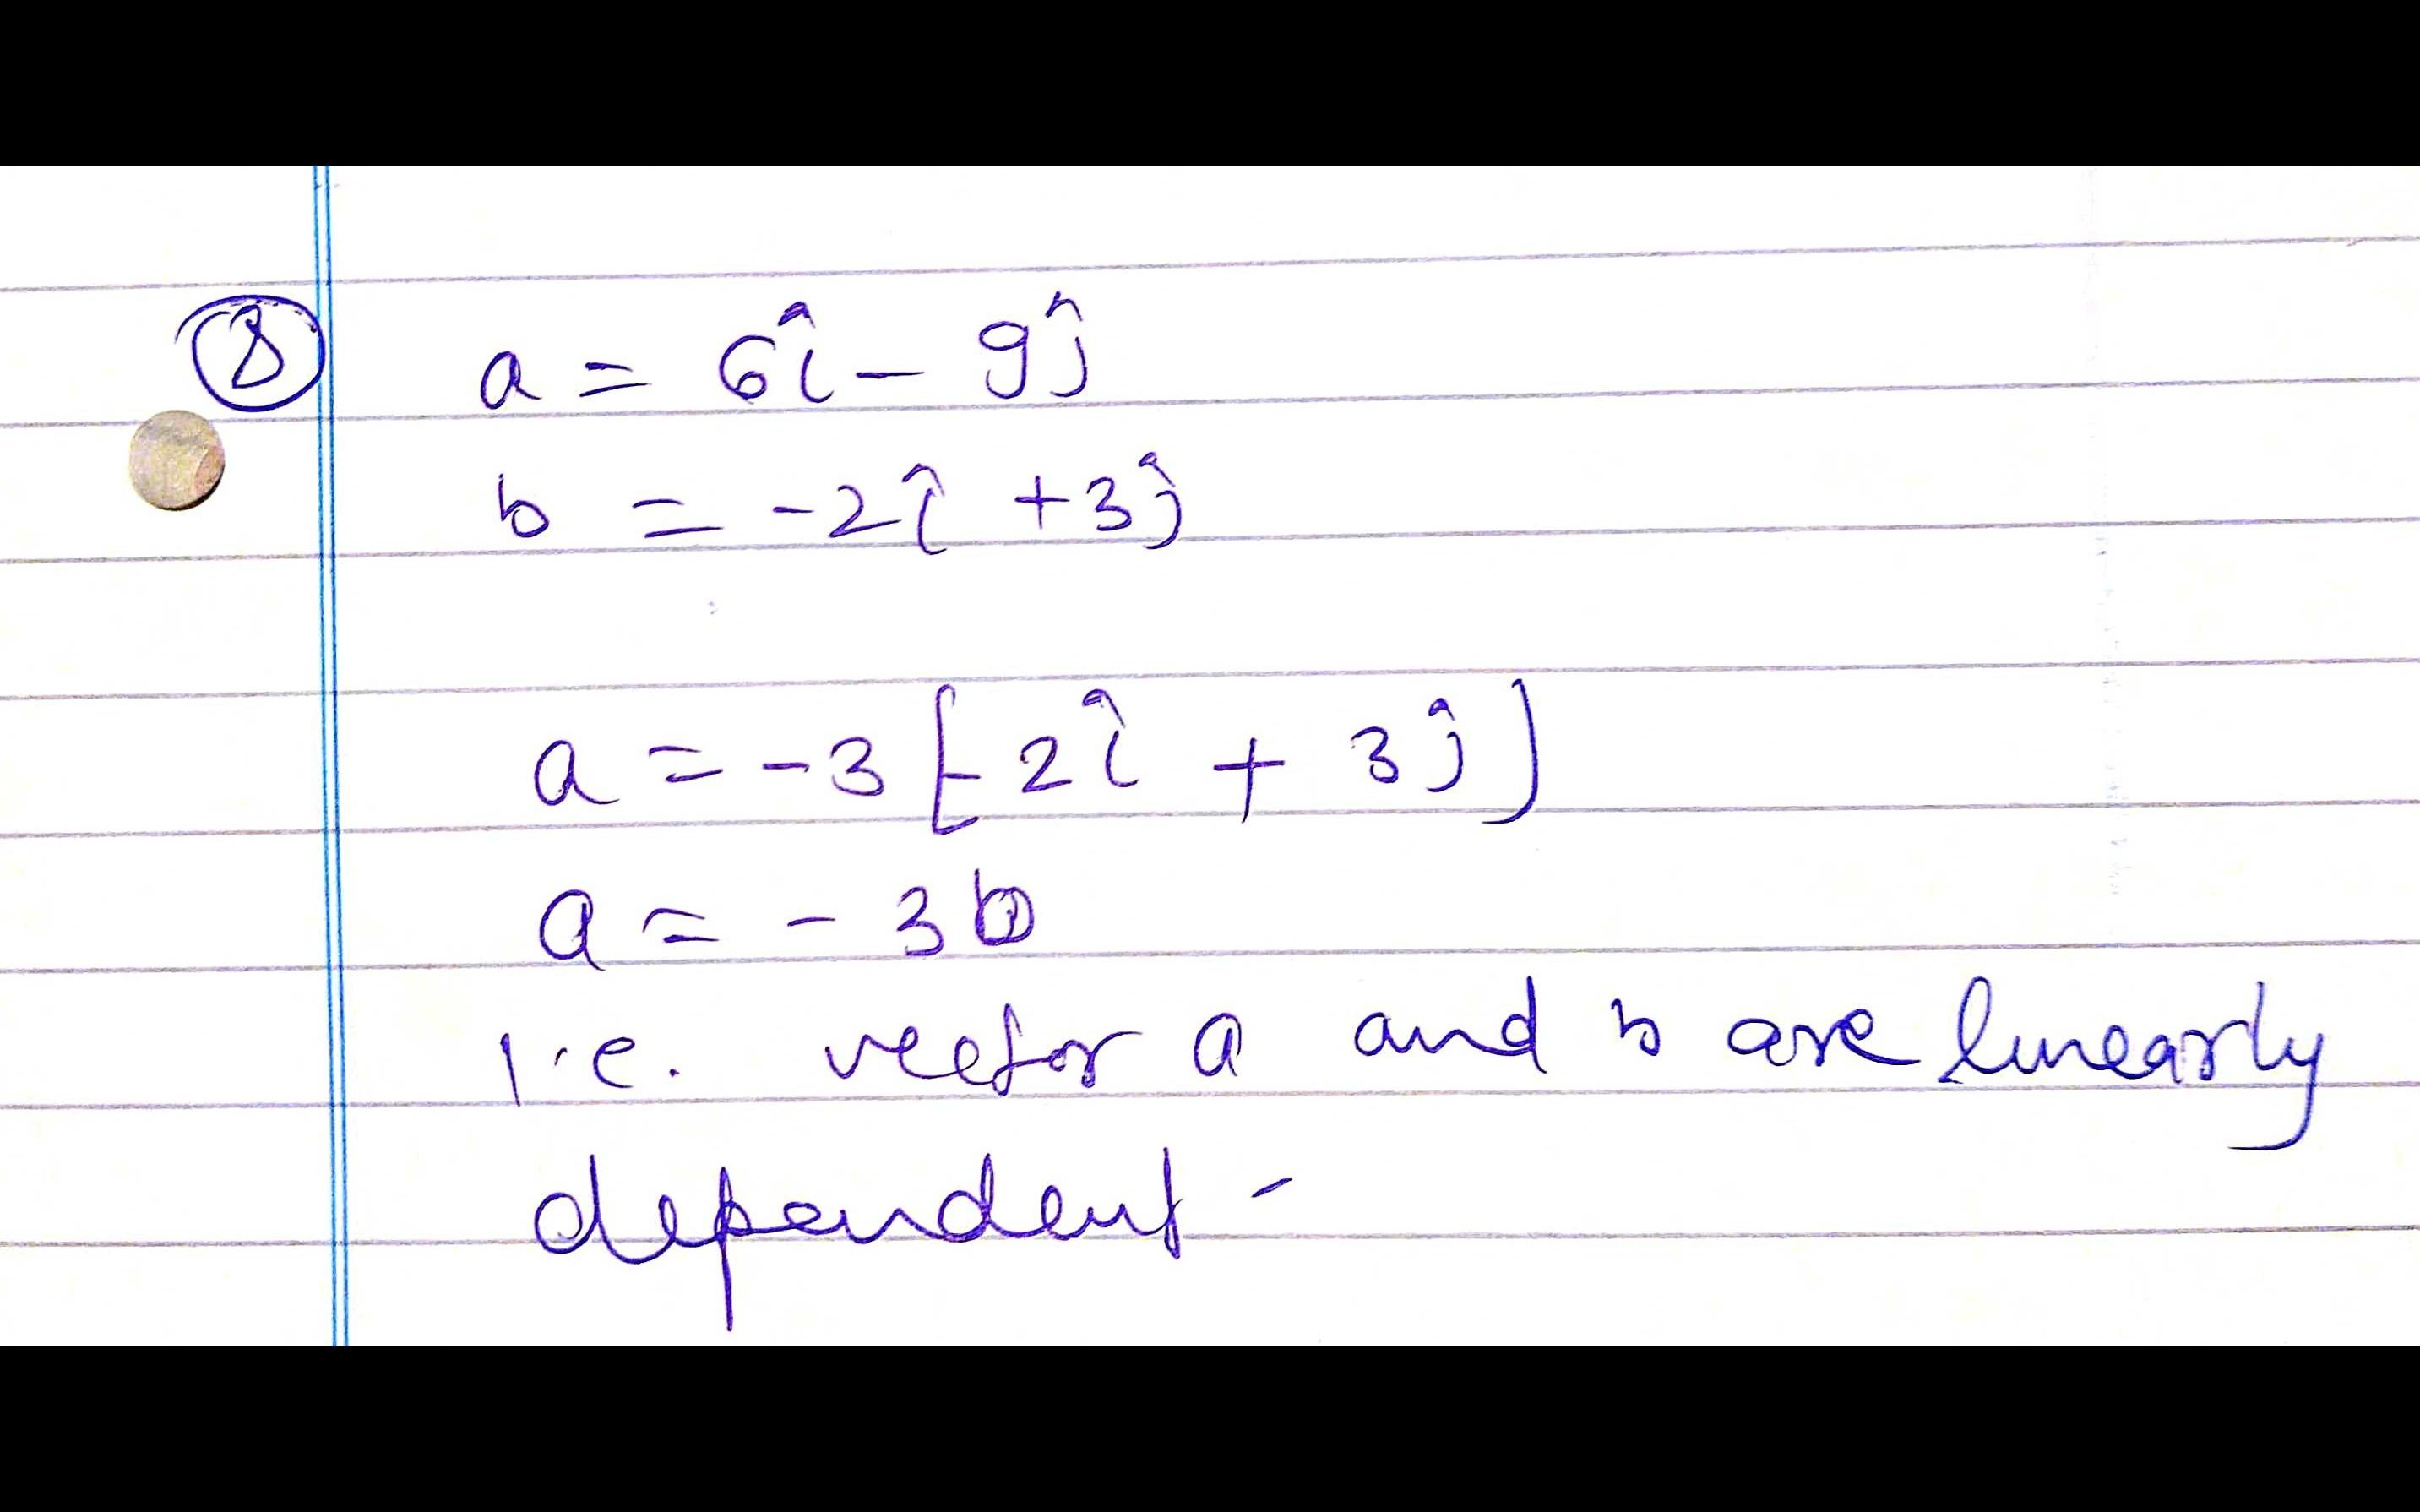 ⑧ a = 6î - 9ĵ
b = -2î + 3ĵ
a = -3[-2î + 3ĵ]
a = - 3b
i.e. vector a and b are linearly
dependent -